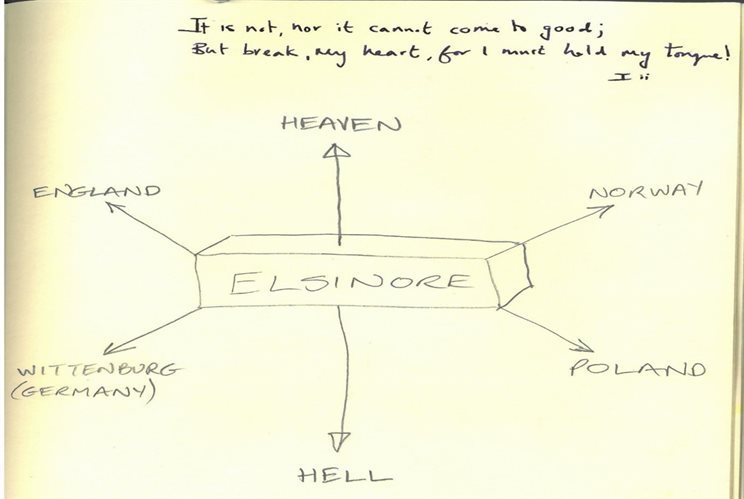 It is not, nor it cannot come to good;
But break, my heart, for I must hold my tongue!
I ii
HEAVEN
ENGLAND
NORWAY
ELSINORE
WITTENBURG
(GERMANY)
POLAND
HELL